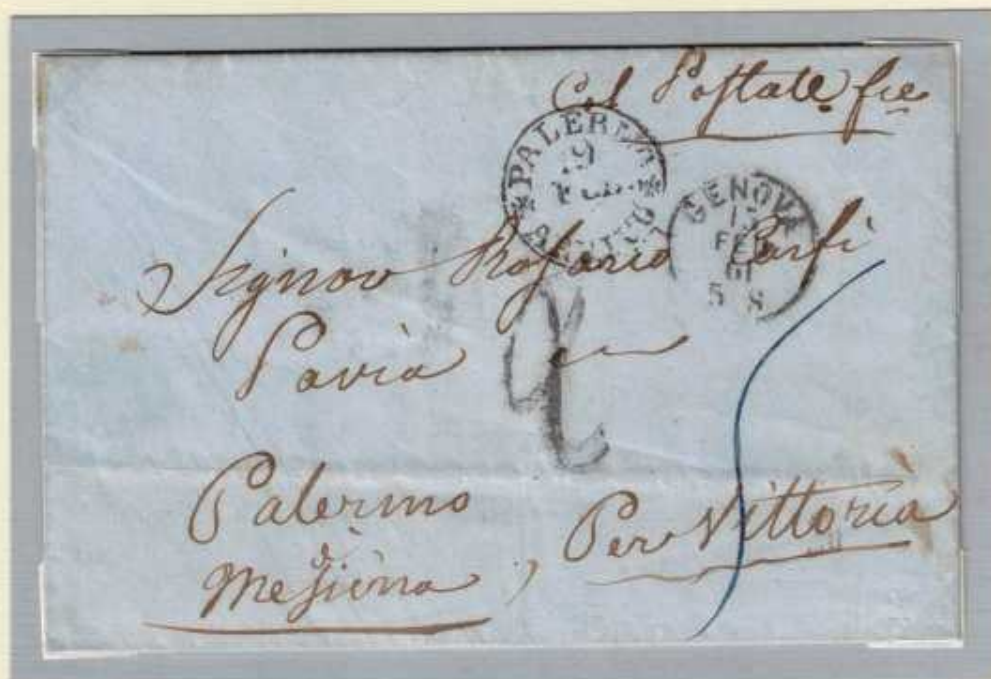 Col Postale fce
* PALERMO *
19
ARRIVO
GENOVA
13
FEB
61
5 S
Signor Rosario
Pavia
4
Palermo
Messina, Per Vittoria